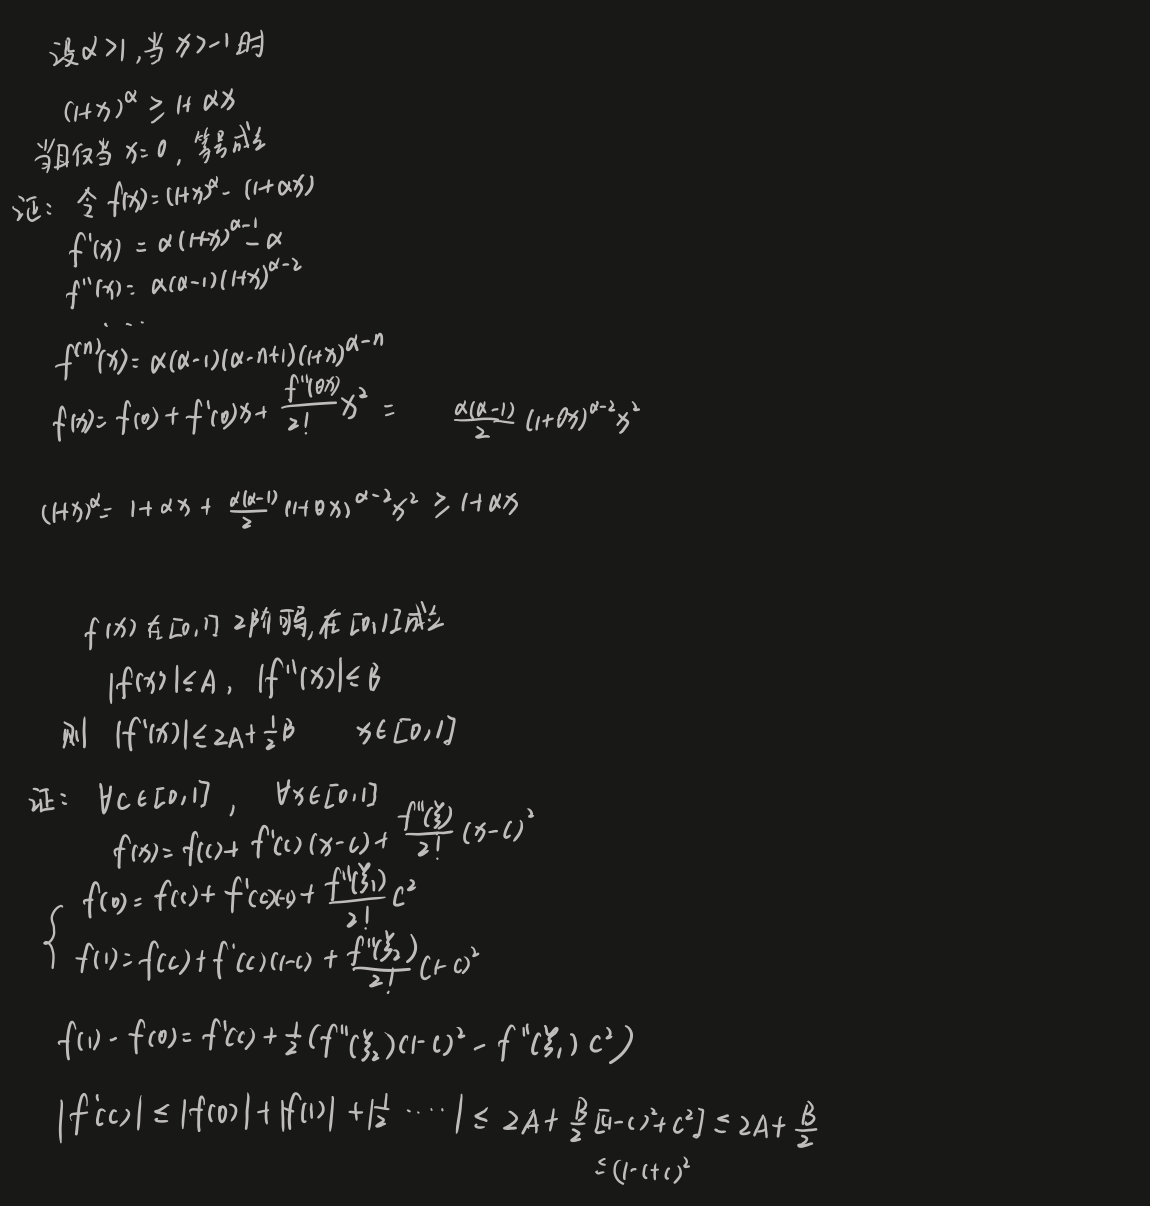 设α>1,当x>-1时
(1+x)^α ≥ 1+αx
当且仅当 x=0, 等号成立
证: 令 f(x)=(1+x)^α-(1+αx)
f'(x) = α(1+x)^{α-1}-α
f''(x)= α(α-1)(1+x)^{α-2}
...
f^{(n)}(x)= α(α-1)(α-n+1)(1+x)^{α-n}
f(x)= f(0)+f'(0)x+\frac{f''(θx)}{2!}x^2 = \frac{α(α-1)}{2}(1+θx)^{α-2}x^2
(1+x)^α= 1+αx+\frac{α(α-1)}{2}(1+θx)^{α-2}x^2 ≥ 1+αx
f(x)在[0,1] 2阶可导,在[0,1]成立
|f(x)|≤A, |f''(x)|≤B
则 |f'(x)|≤2A+\frac{1}{2}B x∈[0,1]
证: ∀c∈[0,1], ∀x∈[0,1]
f(x)= f(c)+f'(c)(x-c)+\frac{f''(ξ)}{2!}(x-c)^2
f(0)= f(c)+f'(c)(-c)+\frac{f''(ξ_1)}{2!}c^2
f(1)=f(c)+f'(c)(1-c)+\frac{f''(ξ_2)}{2!}(1-c)^2
f(1)-f(0)=f'(c)+\frac{1}{2}(f''(ξ_2)(1-c)^2-f''(ξ_1)c^2)
|f'(c)|≤|f(0)|+|f(1)|+|\frac{1}{2}....|≤2A+\frac{B}{2}[(1-c)^2+c^2]≤2A+\frac{B}{2}
≤(1-c+c)^2